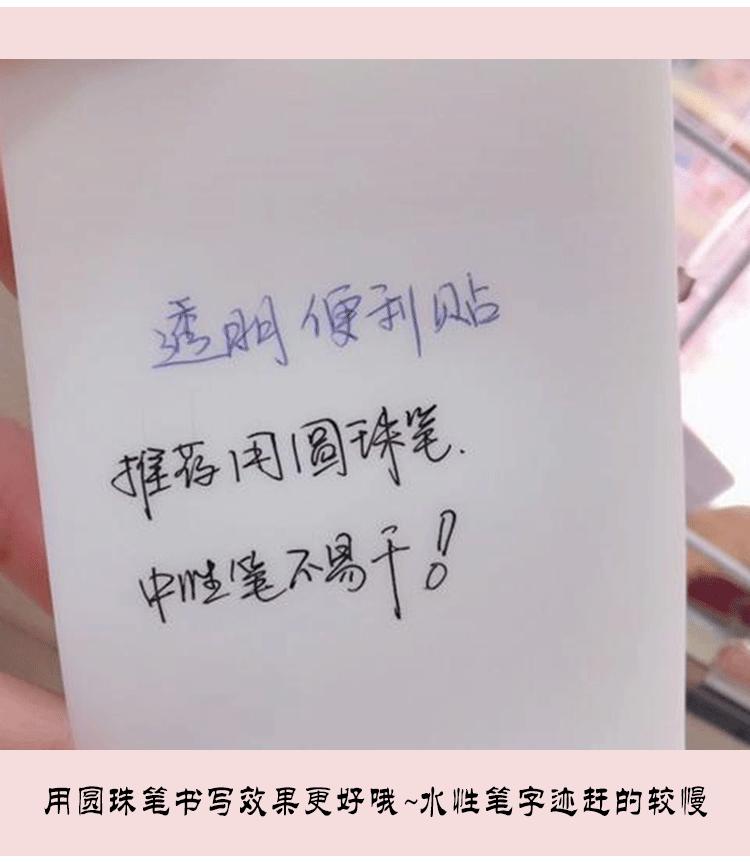 透明便利贴
推荐用圆珠笔.
中性笔不易干!
用圆珠笔书写效果更好哦~水性笔字迹赶的较慢